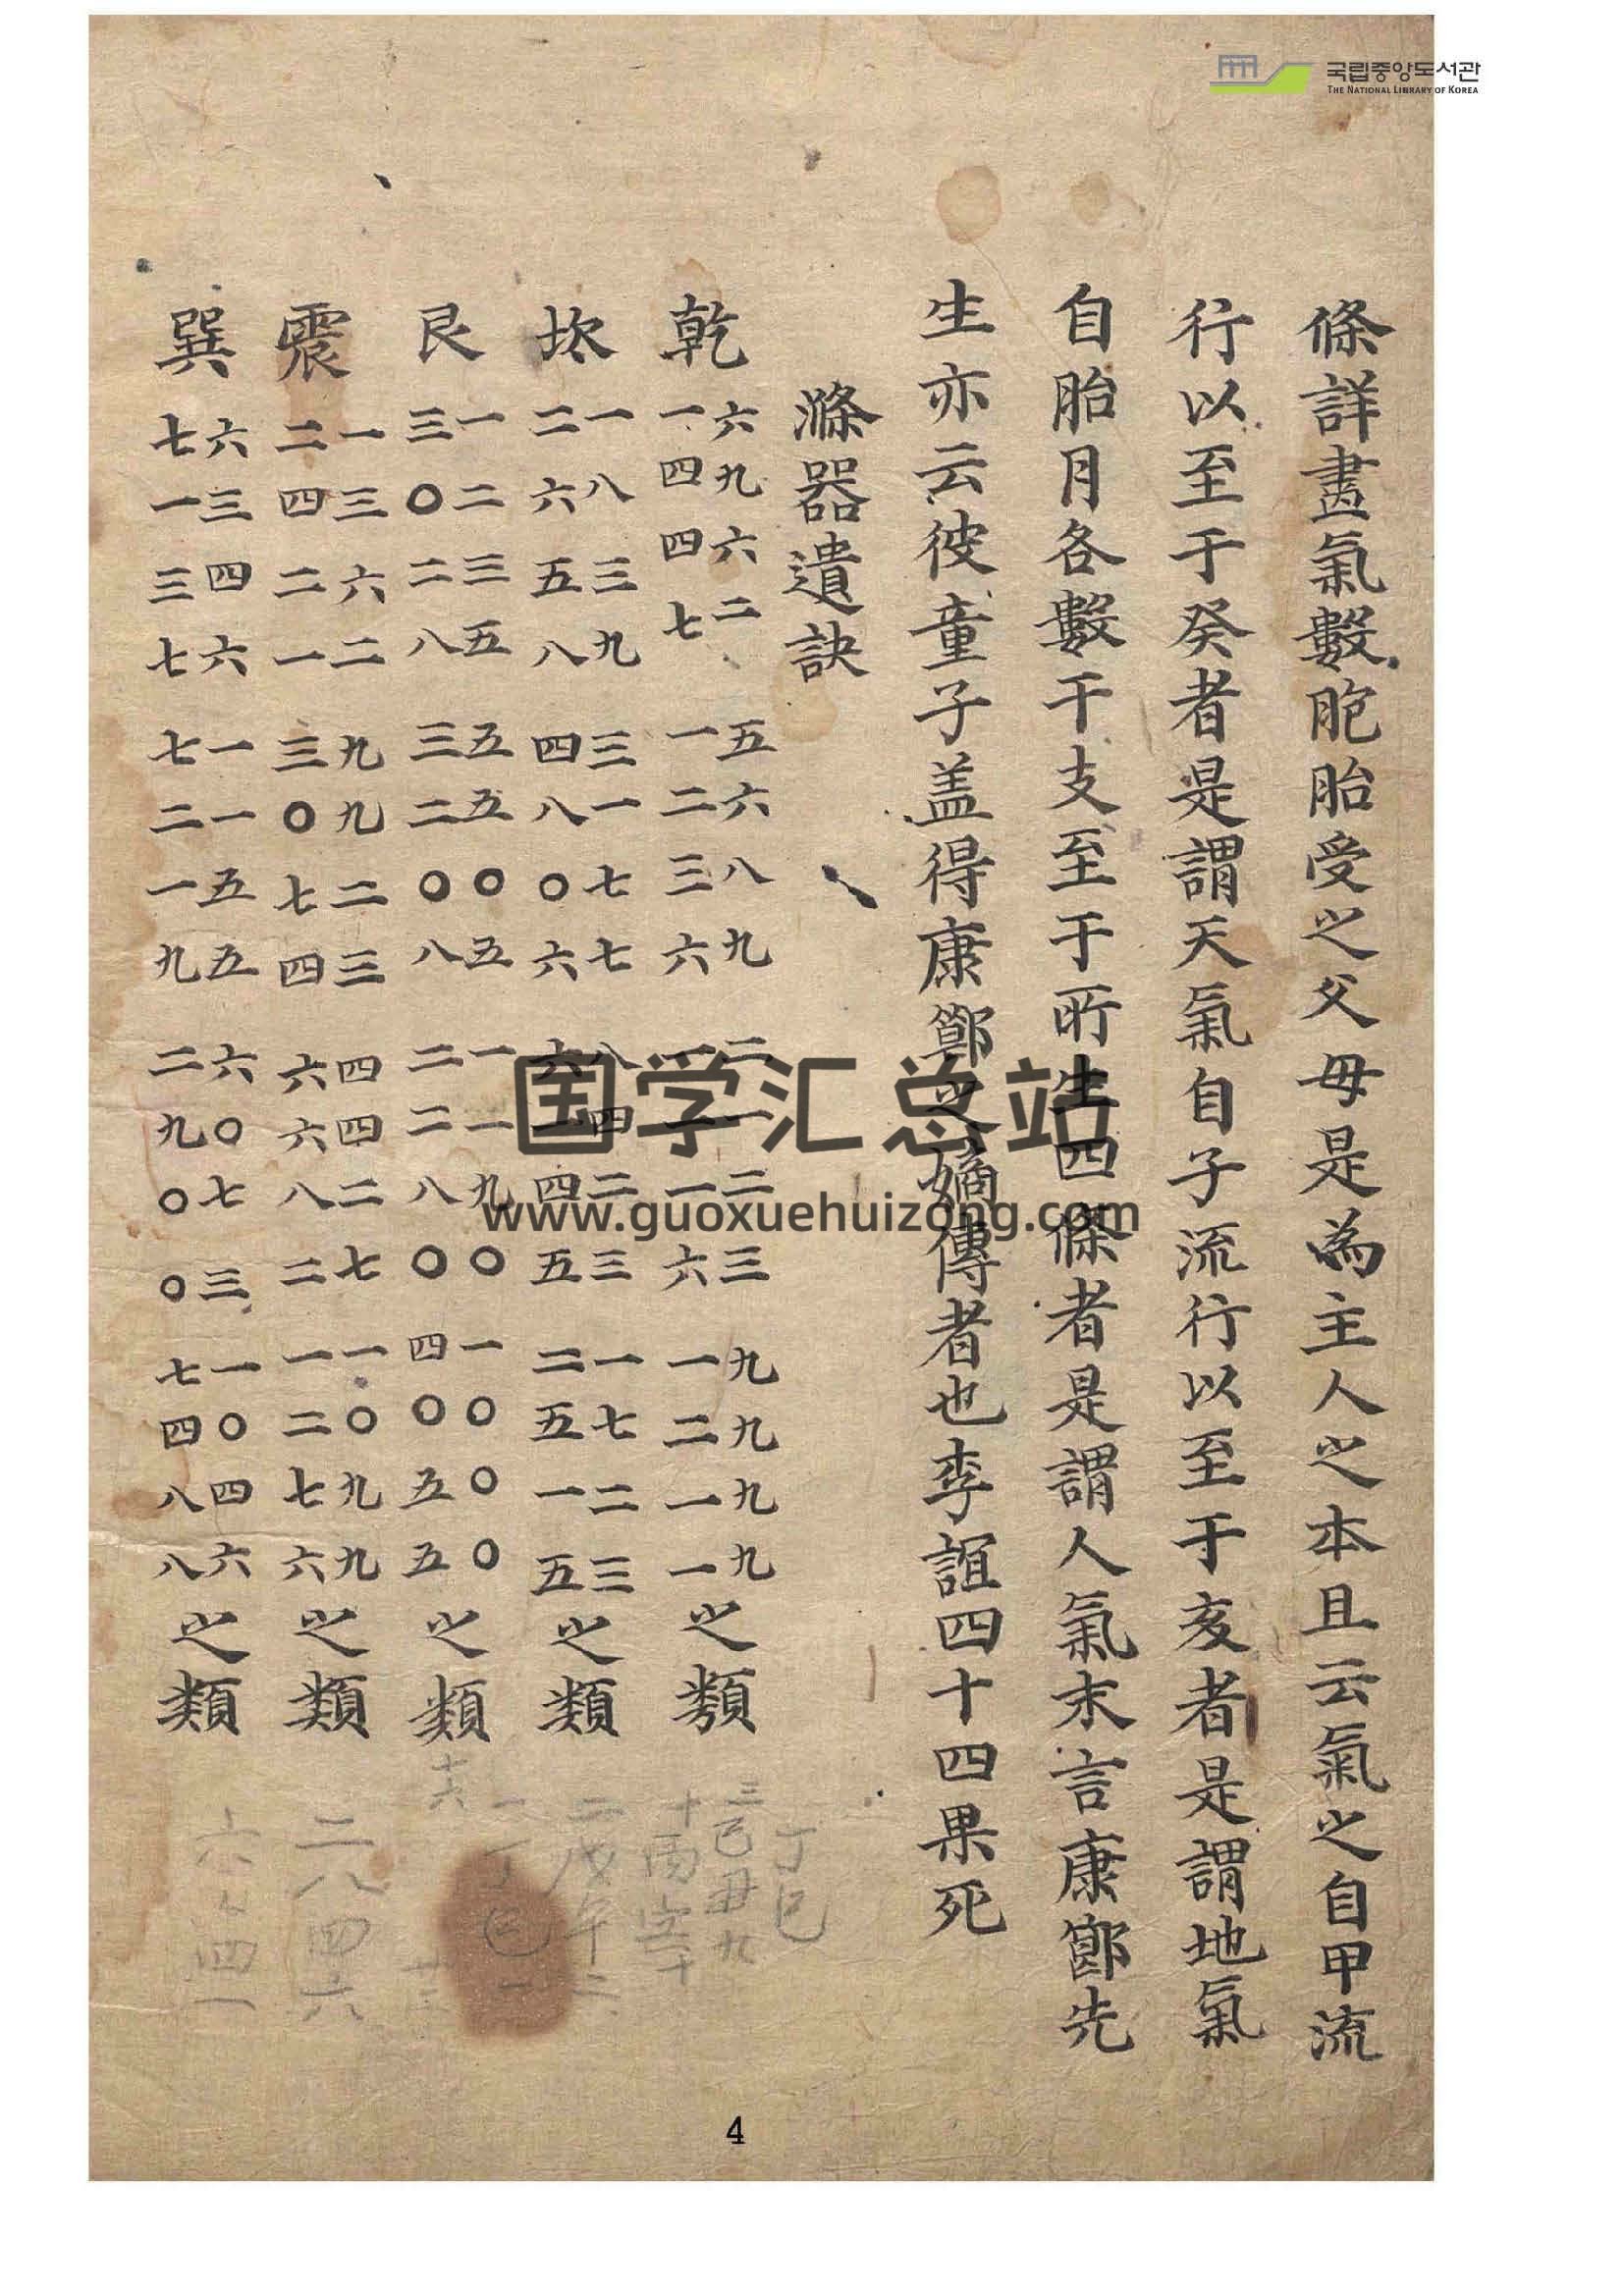 국립중앙도서관
THE NATIONAL LIBRARY OF KOREA
條詳畫氣數胞胎受之父母是為主人之本且云氣之自甲流
行以至于癸者是謂天氣自子流行以至于亥者是謂地氣
自胎月各數干支至于所生四條者是謂人氣末言康鄮先
生亦云彼童子盖得康鄮之嫡傳者也李誼四十四果死
滌器遺訣
乾 六九六二 五六八九 二一二三 九九九九
一四四七 一二三六 一二一六 一二一一 之類
坎 一八三九 三一七七 八四二三 一七二三
二六五八 四八〇六 六二四五 二五一五 之類
艮 一二三五 五五〇五 一一九〇 一〇〇〇
三〇二八 三二〇八 二二八〇 四〇五五 之類
震 一三六二 九九二三 四四二七 一〇九九
二四二一 三〇七四 六六八二 一二七六 之類
巽 六三四六 一一五五 六〇七三 一〇四六
七一三七 七二一九 二九〇〇 七四八八 之類
丁巳
三己丑九
二戊午六
一丁巳一
二八四六
国学汇总站
www.guoxuehuizong.com
4